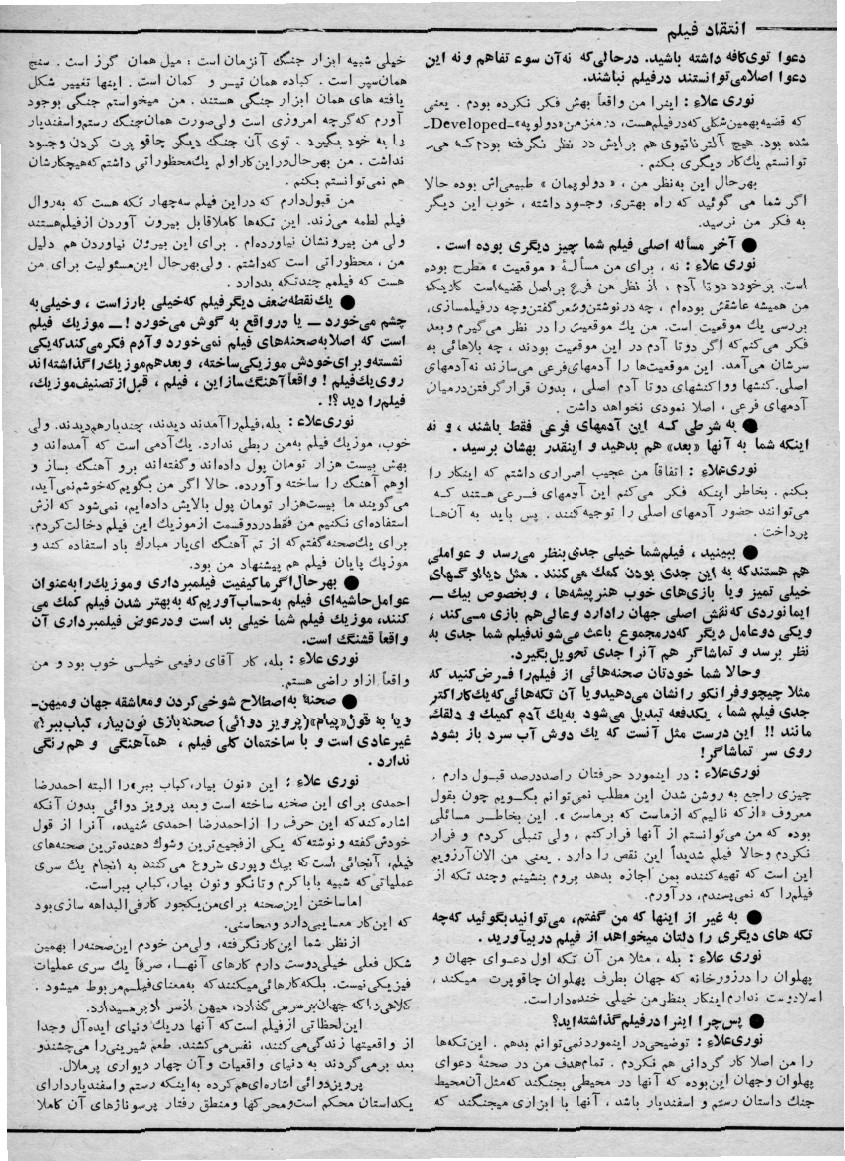 انتقاد فیلم
دعوا توی کافه داشته باشید. درحالی که نه آن سوء تفاهم و نه این
دعوا اصلا می توانستند درفیلم نباشند.
نوری علاء : اینرا من واقعاً بهش فکر نکرده بودم . یعنی
که قضیه بهمین شکلی که در فیلم هست، در مغز من «دولوپه» -Developed-
شده بود. هیچ آلترناتیوی هم برایش در نظر نگرفته بودم که می-
توانستم یك کار دیگری بکنم .
بهرحال این به نظر من ، « دولوپمان » طبیعی‌اش بوده حالا
اگر شما می گوئید که راه بهتری وجود داشته ، خوب این دیگر
به فکر من نرسید.
● آخر مسأله اصلی فیلم شما چیز دیگری بوده است .
نوری علاء : نه ، برای من مسألهٔ « موقعیت » مطرح بوده
است. برخورد دوتا آدم ، از نظر من فرع براصل قضیه است کاریکه
من همیشه عاشقش بوده‌ام ، چه درنوشتن وشعر گفتن وچه درفیلمسازی،
بررسی یك موقعیت است. من یك موقعیت را در نظر می گیرم وبعد
فکر می کنم که اگر دوتا آدم در این موقعیت بودند ، چه بلاهائی به
سرشان می آمد. این موقعیت‌ها را آدمهای فرعی می سازند نه آدمهای
اصلی. کنشها وواکنشهای دوتا آدم اصلی ، بدون قرار گرفتن درمیان
آدمهای فرعی ، اصلا نمودی نخواهد داشت .
● به شرطی کـه این آدمهای فرعی فقط باشند ، و نه
اینکه شما به آنها «بعد» هم بدهید و اینقدر بهشان برسید .
نوری علاء : اتفاقاً من عجیب اصراری داشتم که اینکار را
بکنم . بخاطر اینکه فکر می کنم این آدمهای فـرعی هستند کـه
می توانند حضور آدمهای اصلی را توجیه کنند . پس باید به آن‌هـا
پرداخت .
● ببینید ، فیلم شما خیلی جدی بنظر می رسد و عواملی
هم هستند که به این جدی بودن کمك می کنند . مثل دیالوگهای
خیلی تمیز ویا بازی‌های خوب هنرپیشه‌ها ، وبخصوص بیك ـ
ایمانوردی که نقش اصلی جهان رادارد وعالی هم بازی مـی کند ،
ویکی دوعامل دیگر که درمجموع باعث می شوند فیلم شما جدی به
نظر برسد و تماشاگر هم آنرا جدی تحویل بگیرد.
وحالا شما خودتان صحنه‌هائی از فیلم را فـرض کنید که
مثلا چیچو وفرانکو را نشان می دهید ویا آن تکه‌هائی که یك کاراکتر
جدی فیلم شما ، یکدفعه تبدیل می شود به یك آدم کمیك و دلقك
مانند !! این درست مثل آنست که یك دوش آب سرد باز بشود
روی سر تماشاگر!
نوری علاء : در اینمورد حرفتان راصددرصد قبـول دارم .
چیزی راجع به روشن شدن این مطلب نمی توانم بگـویم چون بقول
معروف «از که نالیم که ازماست که برماست ». این بخاطر مسائلی
بوده که من می توانستم از آنها فرار کنم ، ولی تنبلی کردم و فرار
نکردم وحالا فیلم شدیداً این نقص را دارد . یعنی من الان آرزویم
این است که تهیه کننده بمن اجازه بدهد بروم بنشینم وچند تکه از
فیلم را که نمی پسندم، درآورم.
● به غیر از اینها که من گفتم، می توانید بگوئید که چه
تکه های دیگری را دلتان میخواهد از فیلم دربیآورید .
نوری علاء : بله ، مثلا من آن تکه اول دعـوای جهان و
پهلوان را درزورخانه که جهان بطرف پهلوان چاقو پرت میکند ،
اصلا دوست ندارم اینکار بنظر من خیلی خنده داراست.
● پس چرا اینرا درفیلم گذاشته‌اید؟
نوری علاء : توضیحی در اینمورد نمی توانم بدهم . این تکه‌ها
را من اصلا کار گردانی هم نکردم . تمام هدف من در صحنهٔ دعوای
پهلوان وجهان این بوده که آنها در محیطی بجنگند که مثل آن محیط
جنك داستان رستم و اسفندیار باشد ، آنها با ابزاری میجنگند که
خیلی شبیه ابزار جنگ آنزمان است : میل همان گرز است . سنج
همان سپر است . کباده همان تیـر و کمان است . اینها تغییر شکل
یافته های همان ابزار جنگی هستند . من میخواستم جنگی بوجود
آورم که گرچه امروزی است ولی صورت همان جنگ رستم واسفندیار
را به خود بگیرد . توی آن جنگ دیگر چاقو پرت کردن وجـود
نداشت . من بهرحال دراین کار اولم یك محظوراتی داشتم که هیچکارشان
هم نمی توانستم بکنم .
من قبول دارم که دراین فیلم سه چهار تکه هست که به روال
فیلم لطمه می زند. این تکه‌ها کاملا قابل بیرون آوردن ازفیلم هستند
ولی من بیرونشان نیاورده‌ام . برای این بیرون نیاوردن هم دلیل
من ، محظوراتی است که داشتم . ولی بهرحال این مسئولیت برای من
هست که فیلمم چند تکه بد دارد .
● یك نقطه ضعف دیگر فیلم که خیلی بارز است ، وخیلی به
چشم می خورد ـ یا درواقع به گوش می خورد ! ـ موزیك فیلم
است که اصلا به صحنه‌های فیلم نمی خورد و آدم فکر می کند که یکی
نشسته و برای خودش موزیکی ساخته، و بعد هم موزیك را گذاشته‌اند
روی یك فیلم ! واقعاً آهنگ ساز این ، فیلم ، قبل از تصنیف موزیك،
فیلم را دید ؟! .
نوری علاء : بله، فیلم را آمدند دیدند، چندبار هم دیدند. ولی
خوب، موزیك فیلم به من ربطی ندارد. یك آدمی است که آمده‌اند و
بهش بیست هزار تومان پول داده‌اند وگفته‌اند برو آهنگ بساز و
اوهم آهنگ را ساخته و آورده. حالا اگر من بگویم که خوشم نمی آید،
می گویند ما بیست هزار تومان پول بالایش داده‌ایم، نمی شود که ازش
استفاده‌ای نکنیم من فقط در دو قسمت از موزیك این فیلم دخالت کردم.
برای یك صحنه گفتم که از تم آهنگ ای یار مبارك باد استفاده کند و
موزیك پایان فیلم هم پیشنهاد من بود.
● بهرحال اگر ما کیفیت فیلمبرداری و موزیك را به عنوان
عوامل حاشیه‌ای فیلم به حساب آوریم که به بهتر شدن فیلم کمك می
کنند، موزیك فیلم شما خیلی بد است ودرعوض فیلمبرداری آن
واقعاً قشنگ است.
نوری علاء : بله، کار آقای رفیعی خیلـی خوب بود و من
واقعاً از او راضی هستم.
● صحنه به اصطلاح شوخی کردن ومعاشقه جهان ومیهن-
ویا به قول «پیام» (پرویز دوائی) صحنه بازی نون بیار، کباب ببر!»
غیرعادی است و با ساختمان کلی فیلم ، هم‌آهنگی و هم رنگی
ندارد .
نوری علاء : این «نون بیار، کباب ببر» را البته احمدرضا
احمدی برای این صحنه ساخته است وبعد پرویز دوائی بدون آنکه
اشاره کند که این حرف را از احمدرضا احمدی شنیده، آنرا از قول
خودش گفته و نوشته که یکی از فجیع ترین وشوك دهنده ترین صحنه‌های
فیلم، آنجائی است که بیك وپوری شروع می کنند به انجام یك سری
عملیاتی که شبیه با باکرم وتانگو ونون بیار، کباب ببر است.
اما ساختن این صحنه برای من یکجور کار فی‌البداهه سازی بود
که این کار معایبی دارد ومحاسنی.
از نظر شما این کار نگرفته، ولی من خودم این صحنه را بهمین
شکل فعلی خیلی دوست دارم کارهای آنهـا، صرفاً یك سری عملیات
فیزیکی نیست. بلکه کارهائی میکنند که به معنای فیلم مربوط میشود .
کلاهی را که جهان برسر می گذارد، میهن از سر او بر میدارد.
این لحظاتی از فیلم است که آنها دریك دنیای ایده‌آل وجدا
از واقعیتها زندگی می کنند، نفس می کشند. طعم شیرینی را می چشند و
بعد برمی گردند به دنیای واقعیات و آن چهار دیواری پرملال.
پرویز دوائی اشاره‌ای هم کرده به اینکه رستم واسفندیار دارای
یك داستان محکم است و محرکها ومنطق رفتار پرسوناژهای آن کاملا